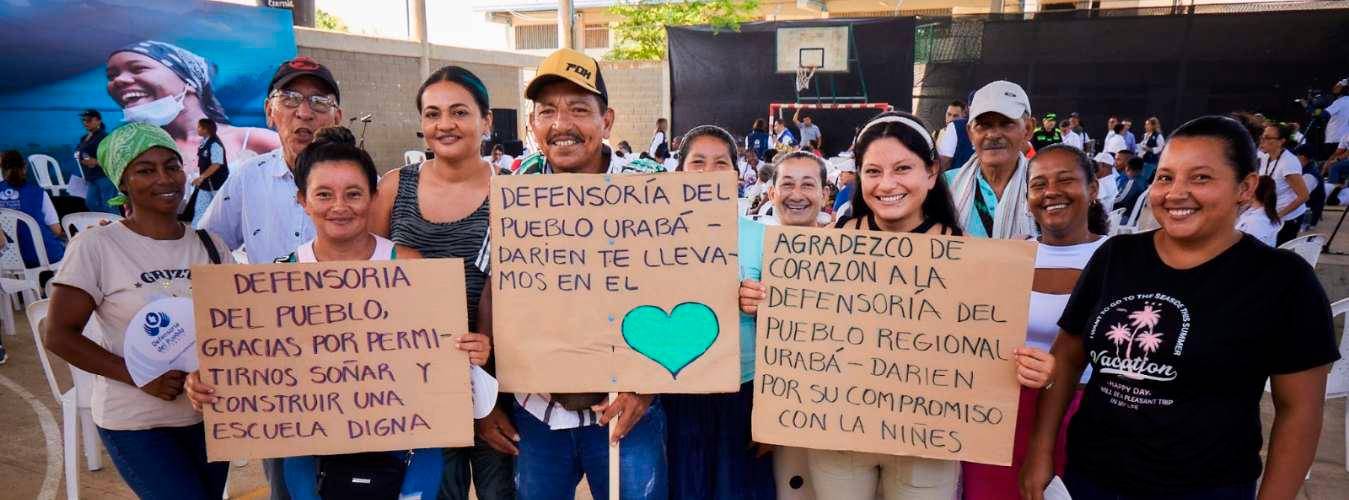 DEFENSORIA
DEL PUEBLO,
GRACIAS POR PERMI-
TIRNOS SOÑAR Y
CONSTRUIR UNA
ESCUELA DIGNA
DEFENSORÍA DEL
PUEBLO URABÁ -
DARIEN TE LLEVA-
MOS EN EL
AGRADEZCO DE
CORAZÓN A LA
DEFENSORÍA DEL
PUEBLO REGIONAL
URABÁ - DARIEN
POR SU COMPROMISO
CON LA NIÑES
Defensoría
del Pueblo
I WANT TO GO TO THE SEASIDE THIS SUMMER
Vacation
HAPPY DAY